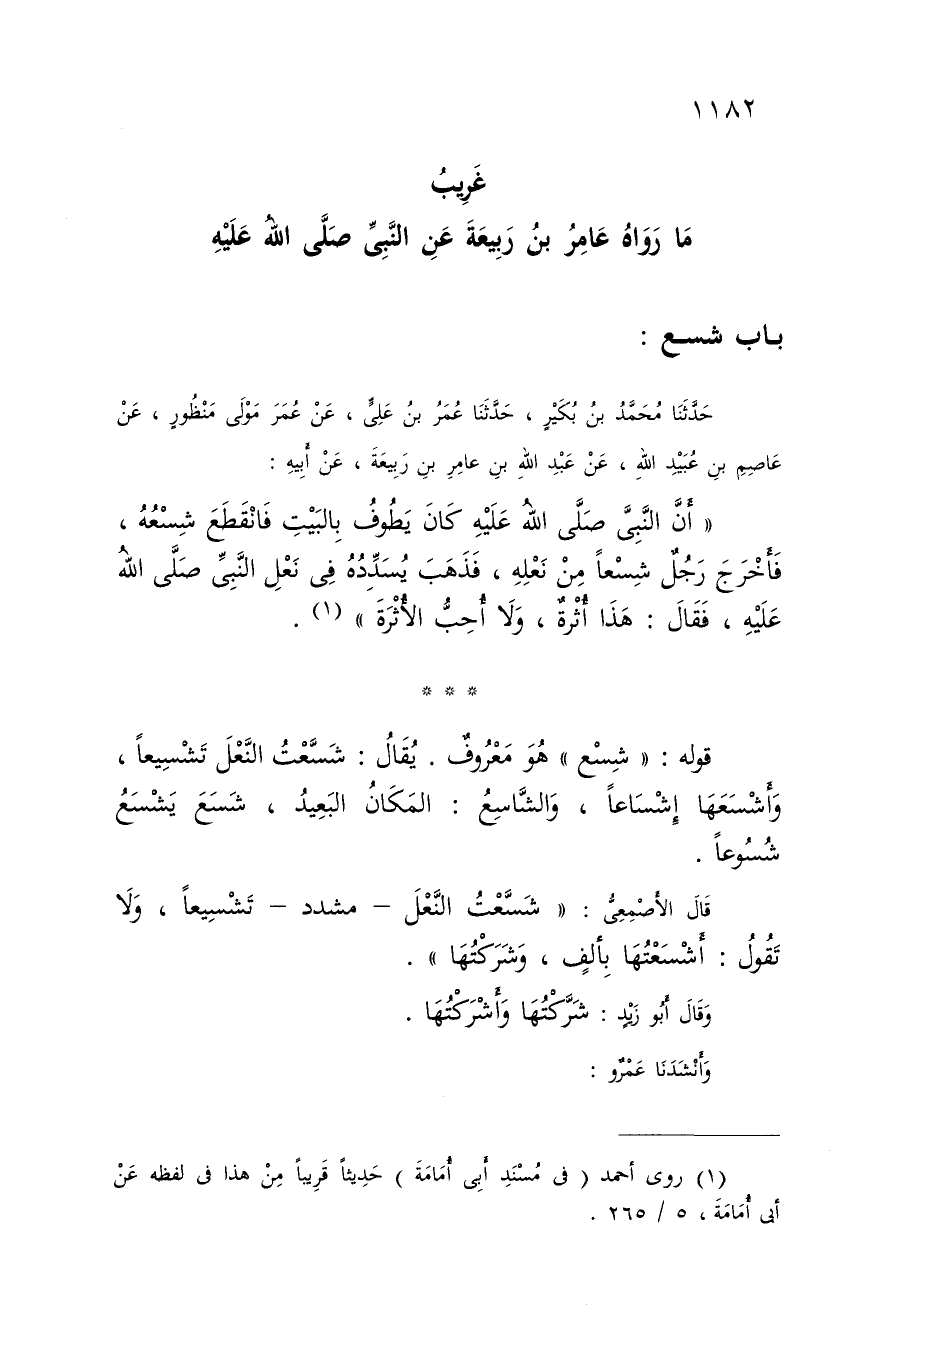 ١١٨٢
غَرِيبُ
مَا رَوَاهُ عَامِرُ بنُ رَبِيعَةَ عَنِ النَّبِىِّ صَلَّى اللهُ عَلَيْهِ
باب شسع :
حَدَّثَنَا مُحَمَّدُ بنُ بُكَيْرٍ ، حَدَّثَنَا عُمَرُ بنُ عَلِىٍّ ، عَنْ عُمَرَ مَوْلَى مَنْظُورٍ ، عَنْ
عَاصِمِ بنِ عُبَيْدِ اللهِ ، عَنْ عَبْدِ اللهِ بنِ عامِرِ بنِ رَبِيعَةَ ، عَنْ أَبِيهِ :
« أَنَّ النَّبِىَّ صَلَّى اللهُ عَلَيْهِ كَانَ يَطُوفُ بِالبَيْتِ فَانْقَطَعَ شِسْعُهُ ،
فَأَخْرَجَ رَجُلٌ شِسْعاً مِنْ نَعْلِهِ ، فَذَهَبَ يُسَدِّدُهُ فِى نَعْلِ النَّبِىِّ صَلَّى اللهُ
عَلَيْهِ ، فَقَالَ : هَذَا أُثْرةٌ ، وَلَا أُحِبُّ الأُثْرَةَ » (١) .
* * *
قوله : « شِسْع » هُوَ مَعْرُوفٌ . يُقَالُ : شَسَّعْتُ النَّعْلَ تَشْسِيعاً ،
وَأَشْسَعَهَا إِشْسَاعاً ، وَالشَّاسِعُ : المَكَانُ البَعِيدُ ، شَسَعَ يَشْسَعُ
شُسُوعاً .
قَالَ الأَصْمِعِىُّ : « شَسَّعْتُ النَّعْلَ – مشدد – تَشْسِيعاً ، وَلَا
تَقُولُ : أَشْسَعْتُهَا بِأَلفٍ ، وَشَرَكْتُهَا » .
وَقَالَ أَبُو زَيْدٍ : شَرَّكْتُهَا وَأَشْرَكْتُهَا .
وَأَنْشَدَنَا عَمْرٌو :
(١) روى أحمد ( فى مُسْنَدِ أَبِى أُمَامَةَ ) حَدِيثاً قَرِيباً مِنْ هذا فى لفظه عَنْ
أبى أُمَامَةَ ، ٥ / ٢٦٥ .